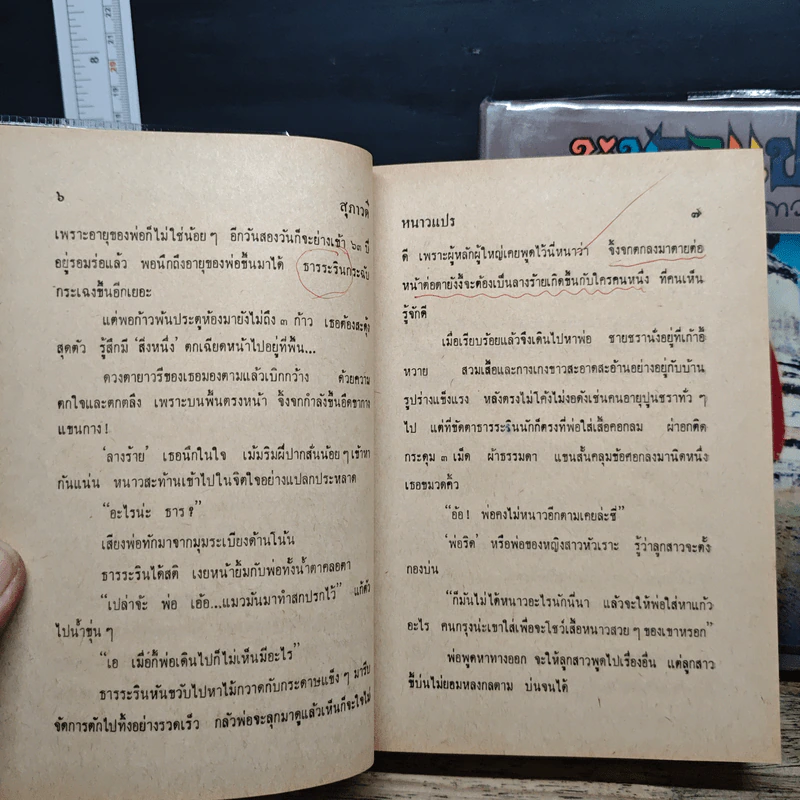 ๖ สุภาวดี
เพราะอายุของพ่อก็ไม่ใช่น้อย ๆ อีกวันสองวันก็จะย่างเข้า ๖๓ ปี
อยู่รอมร่อแล้ว พอนึกถึงอายุของพ่อขึ้นมาได้ ธารระรินกระฉับ
กระเฉงขึ้นอีกเยอะ
แต่พอก้าวพ้นประตูห้องมายังไม่ถึง ๓ ก้าว เธอต้องสะดุ้ง
สุดตัว รู้สึกมี ‘สิ่งหนึ่ง’ ตกเฉียดหน้าไปอยู่ที่พื้น...
ดวงตายาวรีของเธอมองตามแล้วเบิกกว้าง ด้วยความ
ตกใจและตกตลึง เพราะบนพื้นตรงหน้า จิ้งจกกำลังขึ้นอืดขากาง
แขนกาง!
‘ลางร้าย’ เธอนึกในใจ เม้มริมฝีปากสั่นน้อย ๆ เข้าหา
กันแน่น หนาวสะท้านเข้าไปในจิตใจอย่างแปลกประหลาด
“อะไรน่ะ ธาร ?”
เสียงพ่อทักมาจากมุมระเบียงด้านโน้น
ธารระรินได้สติ เงยหน้ายิ้มกับพ่อทั้งน้ำตาคลอตา
“เปล่าจ้ะ พ่อ เอ้อ...แมวมันมาทำสกปรกไว้” แก้ตัว
ไปน้ำขุ่น ๆ
“เอ เมื่อกี้พ่อเดินไปก็ไม่เห็นมีอะไร”
ธารระรินหันขวับไปหาไม้กวาดกับกระดาษแข็ง ๆ มารีบ
จัดการตักไปทิ้งอย่างรวดเร็ว กลัวพ่อจะลุกมาดูแล้วเห็นก็จะใจไม่
หนาวแปร ๗
ดี เพราะผู้หลักผู้ใหญ่เคยพูดไว้นี่หนาว่า จิ้งจกตกลงมาตายต่อ
หน้าต่อตายังงี้จะต้องเป็นลางร้ายเกิดขึ้นกับใครคนหนึ่ง ที่คนเห็น
รู้จักดี
เมื่อเรียบร้อยแล้วจึงเดินไปหาพ่อ ชายชรานั่งอยู่ที่เก้าอี้
หวาย สวมเสื้อและกางเกงขาวสะอาดสะอ้านอย่างอยู่กับบ้าน
รูปร่างแข็งแรง หลังตรงไม่โค้งไม่งอดังเช่นคนอายุปูนชราทั่ว ๆ
ไป แต่ที่ขัดตาธารระรินนักก็ตรงที่พ่อใส่เสื้อคอกลม ผ่าอกติด
กระดุม ๓ เม็ด ผ้าธรรมดา แขนสั้นคลุมข้อศอกลงมานิดหนึ่ง
เธอขมวดคิ้ว
“อ้อ! พ่อคงไม่หนาวอีกตามเคยล่ะซี”
‘พ่อริด’ หรือพ่อของหญิงสาวหัวเราะ รู้ว่าลูกสาวจะตั้ง
กองบ่น
“ก็มันไม่ได้หนาวอะไรนักนี่นา แล้วจะให้พ่อใส่หาแก้ว
อะไร คนกรุงน่ะเขาใส่เพื่อจะโชว์เสื้อหนาวสวย ๆ ของเขาหรอก”
พ่อพูดหาทางออก จะให้ลูกสาวพูดไปเรื่องอื่น แต่ลูกสาว
ขี้บ่นไม่ยอมหลงกลตาม บ่นจนได้
8
22
21
20
19
18